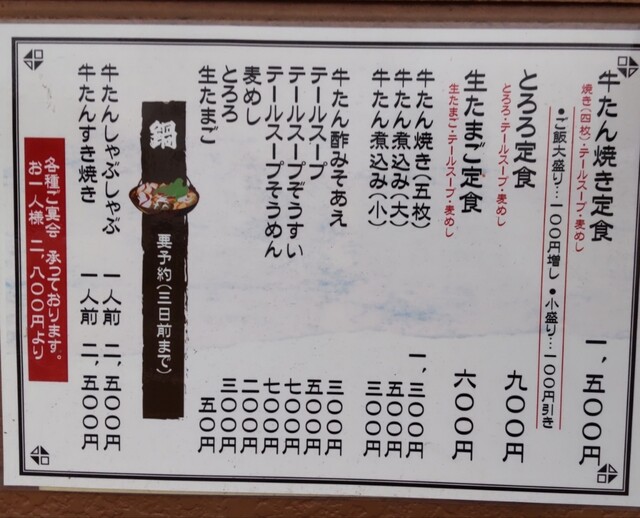 牛たん焼き定食 一、五〇〇円
焼き(四枚)・テールスープ・麦めし
●ご飯大盛り…一〇〇円増し ●小盛り…一〇〇円引き
とろろ定食 九〇〇円
とろろ・テールスープ・麦めし
生たまご定食 六〇〇円
生たまご・テールスープ・麦めし
牛たん焼き(五枚) 一、三〇〇円
牛たん煮込み(大) 五〇〇円
牛たん煮込み(小) 三〇〇円
牛たん酢みそあえ 三〇〇円
テールスープ 五〇〇円
テールスープぞうすい 七〇〇円
テールスープそうめん 七〇〇円
麦めし 二〇〇円
とろろ 三〇〇円
生たまご 五〇円
鍋 要予約(三日前まで)
牛たんしゃぶしゃぶ 一人前 二、五〇〇円
牛たんすき焼き 一人前 二、五〇〇円
各種ご宴会 承っております。
お一人様 二、八〇〇円より